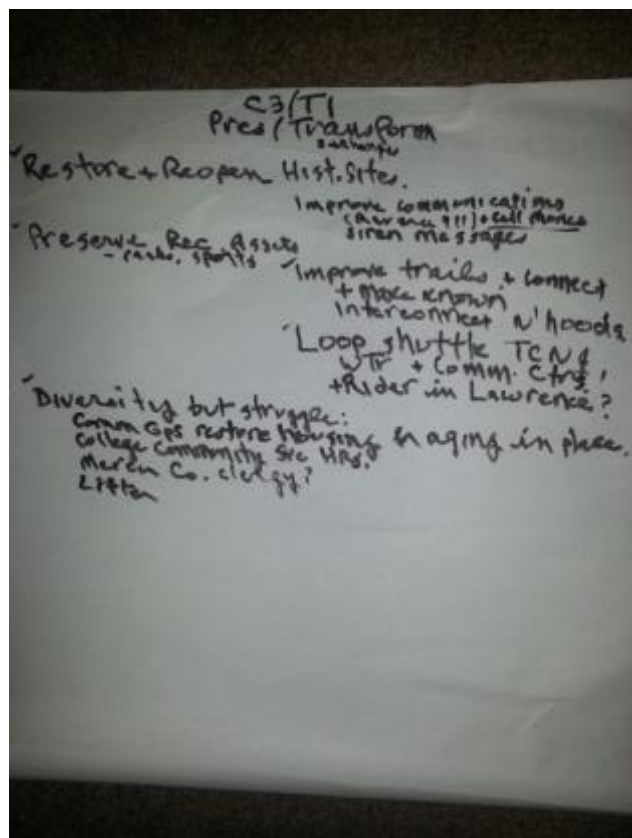 C3/T1
Pres/Transform
Restore + Reopen Hist. Sites.
Improve communications
(Reverse 911) + cell phones
siren messages
Preserve Rec Assets
- parks, sports
Improve trails + connect
+ make known
Interconnect N'hoods
Loop shuttle TCNJ
+ Comm. Ctrs!
+ Rider in Lawrence?
Diversity but struggle:
Comm Gps restore housing aging in place.
College Community Svc Hrs.
Mercer Co. clergy?